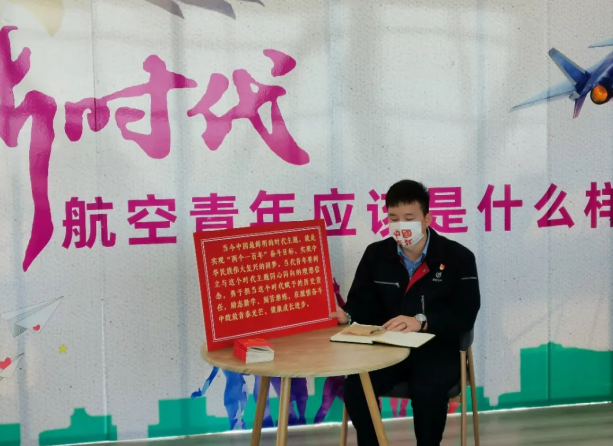 新时代
航空青年应该是什么样
当今中国最鲜明的时代主题，就是
实现“两个一百年”奋斗目标、实现中
华民族伟大复兴的中国梦。当代青年要树
立与这个时代主题同心同向的理想信
念，勇于担当这个时代赋予的历史责
任，励志勤学、刻苦磨炼，在激情奋斗
中绽放青春光芒、健康成长进步。
中国